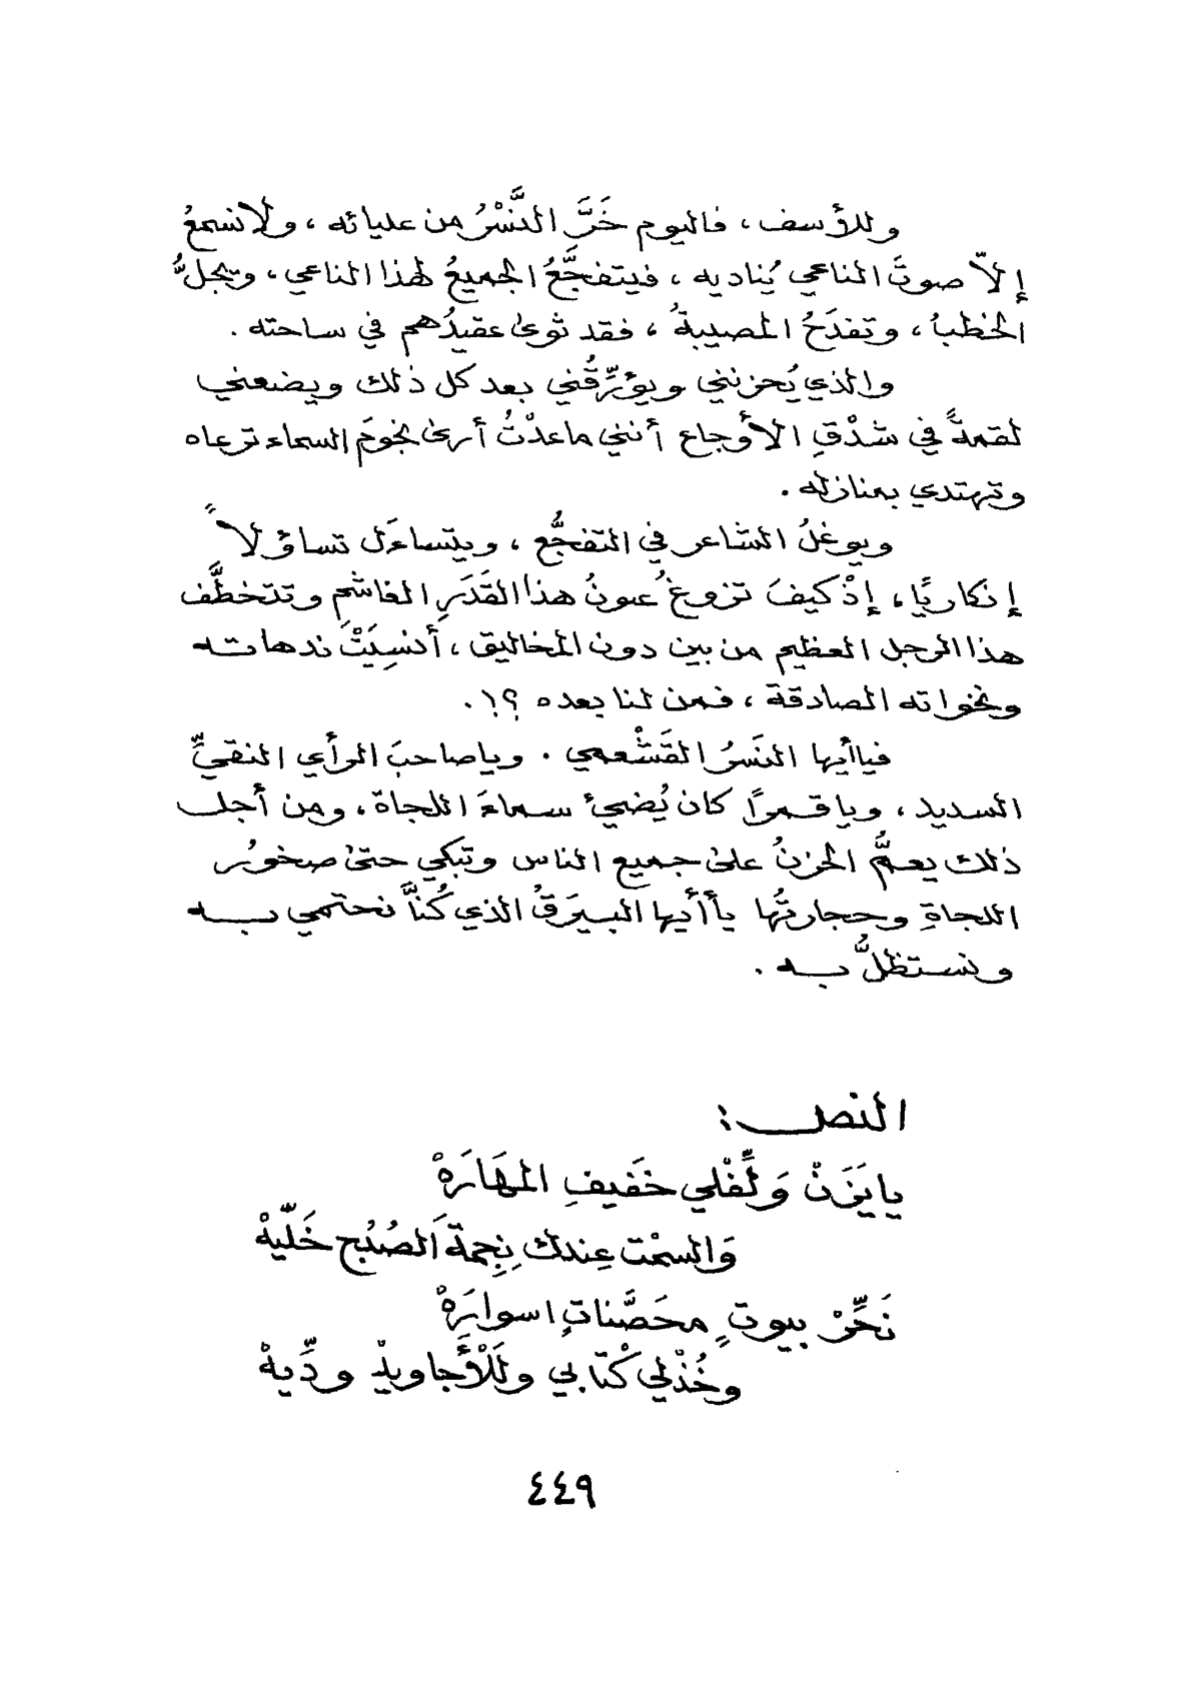 وللأسف، فاليوم خَرَّ النَّسْرُ من عليائه، ولا نسمعُ
إلاّ صوتَ الناعي يُناديه، فيتفجَّعُ الجميعُ لهذا الناعي، ويجلُّ
الخطبُ، وتفدَحُ المصيبةُ، فقد ثوى عقيدُهم في ساحته.
والذي يُحزنني ويؤرِّقُني بعد كل ذلك ويضعني
لقمةً في شدْقِ الأوجاع أنني ما عدْتُ أرى نجومَ السماء ترعاه
وتهتدي بمنازله.
ويوغلُ الشاعر في التفجُّع، ويتساءَل تساؤلاً
إنكاريًا، إذْ كيفَ تزوغُ عيونُ هذا القَدَرِ الغاشمِ وتتخطَّف
هذا الرجل العظيم من بين دون المخاليق، أنسِيَتْ ندهاته
ونخواته الصادقة، فمن لنا بعده ؟!.
فياأيها النسَرُ القَشْعمي. وياصاحبَ الرأي النقيِّ
السديد، وياقمرًا كان يُضيئ سماءَ اللجاة، ومن أجل
ذلك يعمُّ الحزنُ على جميع الناس وتبكي حتى صخورُ
اللجاةِ وحجارتُها يأأيها البيرَقُ الذي كُنَّا نحتمي به
ونستظلُّ به.
النص:
يايَزَنْ وَلِّفْلي خَفيفِ المهَارَهْ
وَالسمْت عِندك نِجمةَ الصُبُح خَلّيهْ
نَحِّرْ بيوتٍ محَصَّناتٍ اسوارَهْ
وخُذْلي كْتابي ولَلْأَجاويدْ ودِّيهْ
٤٤٩